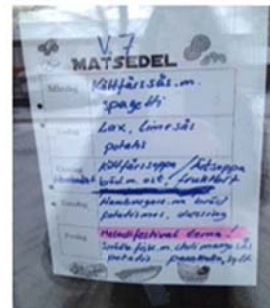 V. 7
MATSEDEL
Måndag
Köttfärssås m.
spagetti
Tisdag
Lax, Limesås
potatis
Onsdag
Köttfärssoppa /
bröd m. ost,
Torsdag
Hamburgare m bröd
potatismos, dressing
Fredag
Melodifestival tema!
m chili mango sås
potatis